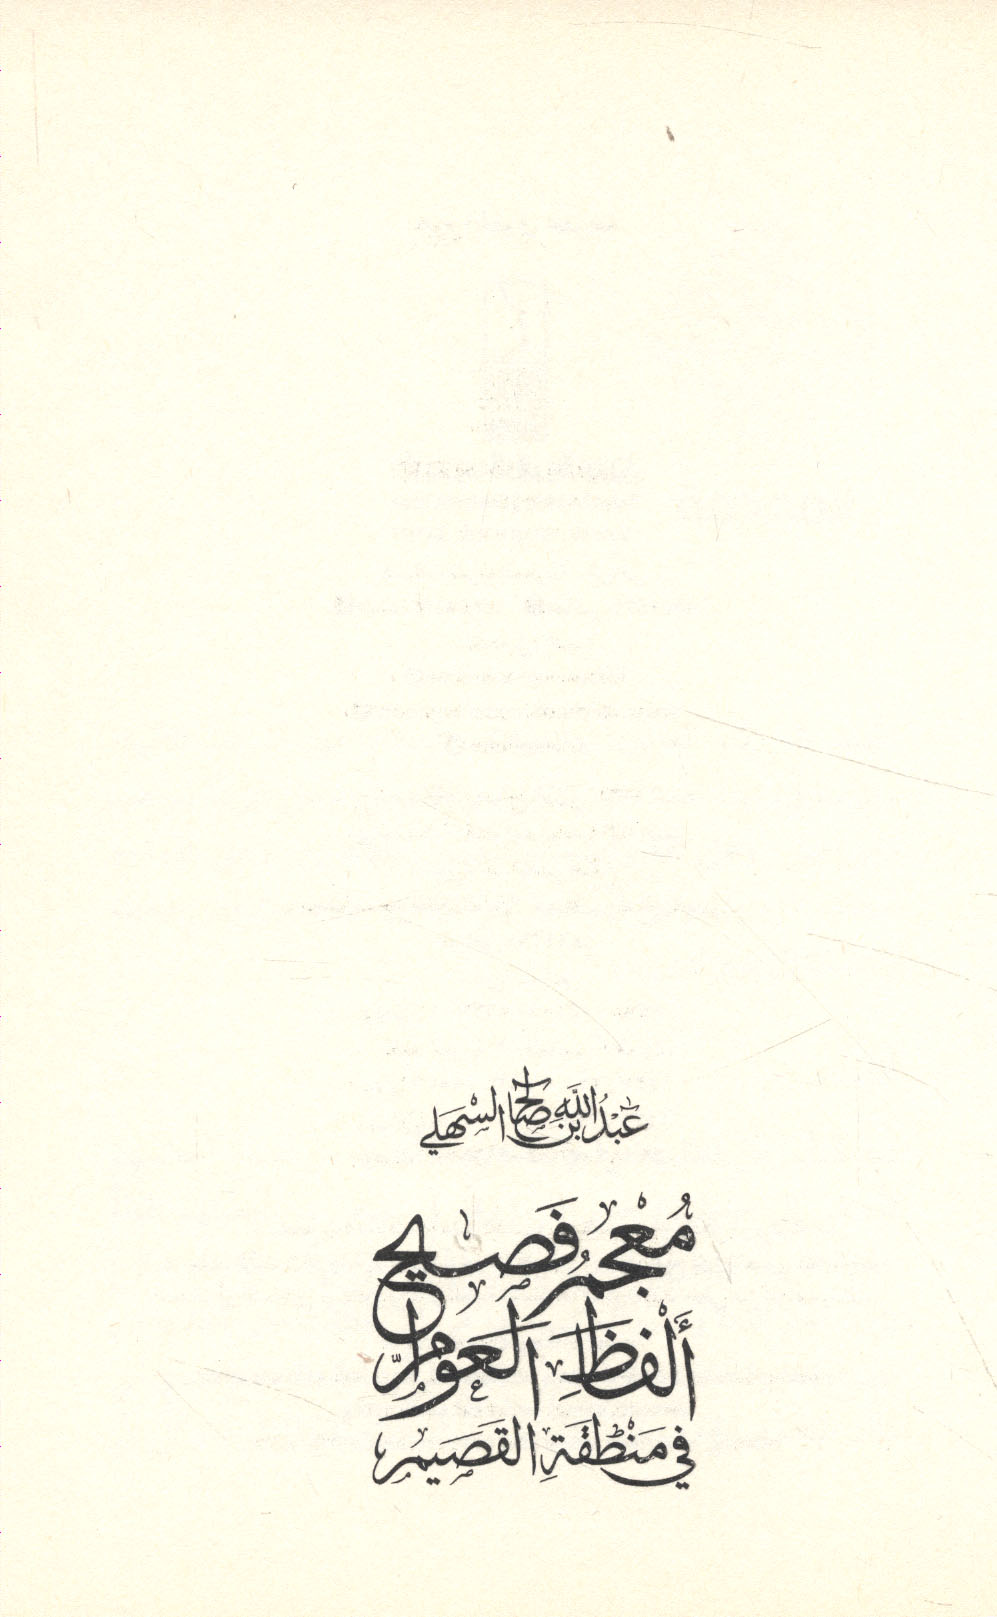 عَبْدُ اللَّه بْن صَالح السَّهلي
مُعْجَمُ فَصِيح
أَلْفَاظِ العَوَامّ
في مَنْطِقَةِ القَصِيم